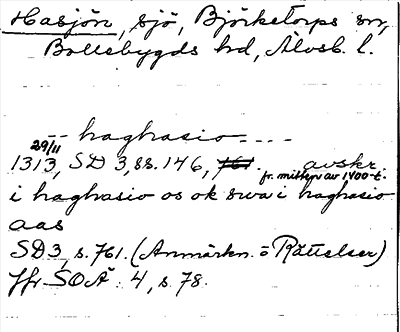 Hasjön, sjö, Björketorps sn,
Bollebygds hd, Älvsb. l.
-- haghasio ----
29/11
1313, SD 3, ss. 146, 761. avskr.
fr. mitten av 1400-t.
i haghasio os ok swa i haghasio
aas
SD3, s. 761. (Anmärkn. o Rättelser)
Jfr SOÄ: 4, s. 78.